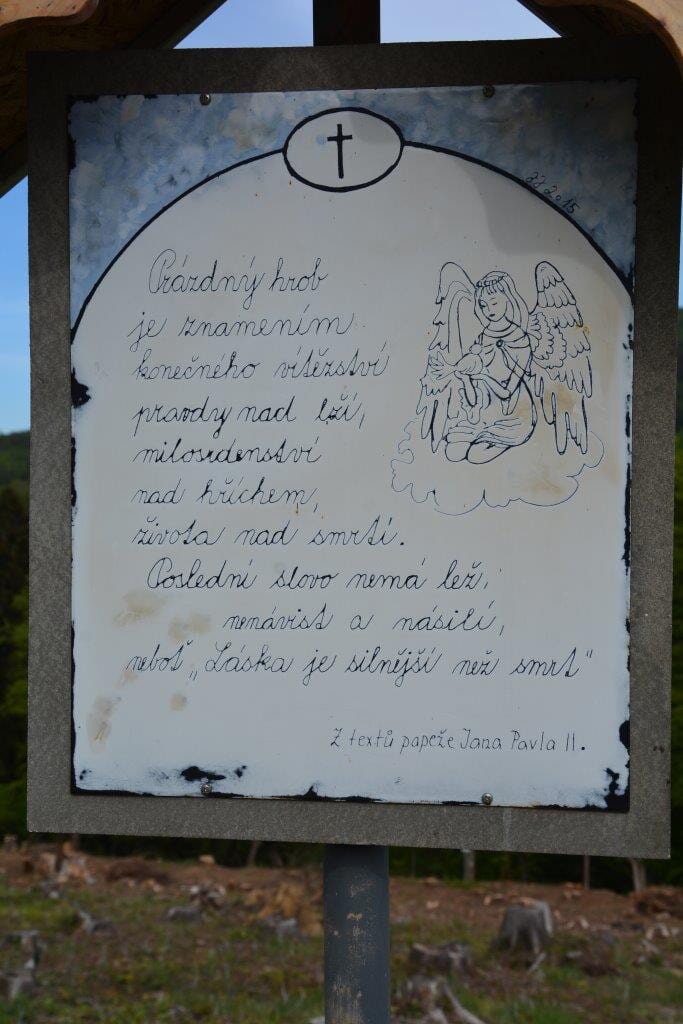 JJ 2015
Prázdný hrob
je znamením
konečného vítězství
pravdy nad lží,
milosrdenství
nad hříchem,
života nad smrtí.
Poslední slovo nemá lež,
nenávist a násilí,
neboť „Láska je silnější než smrt“
Z textů papeže Jana Pavla II.